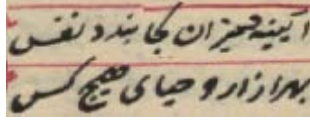 آیینه حیزان کجا بندد نفس
بهر آزار و حیای هیچ کس